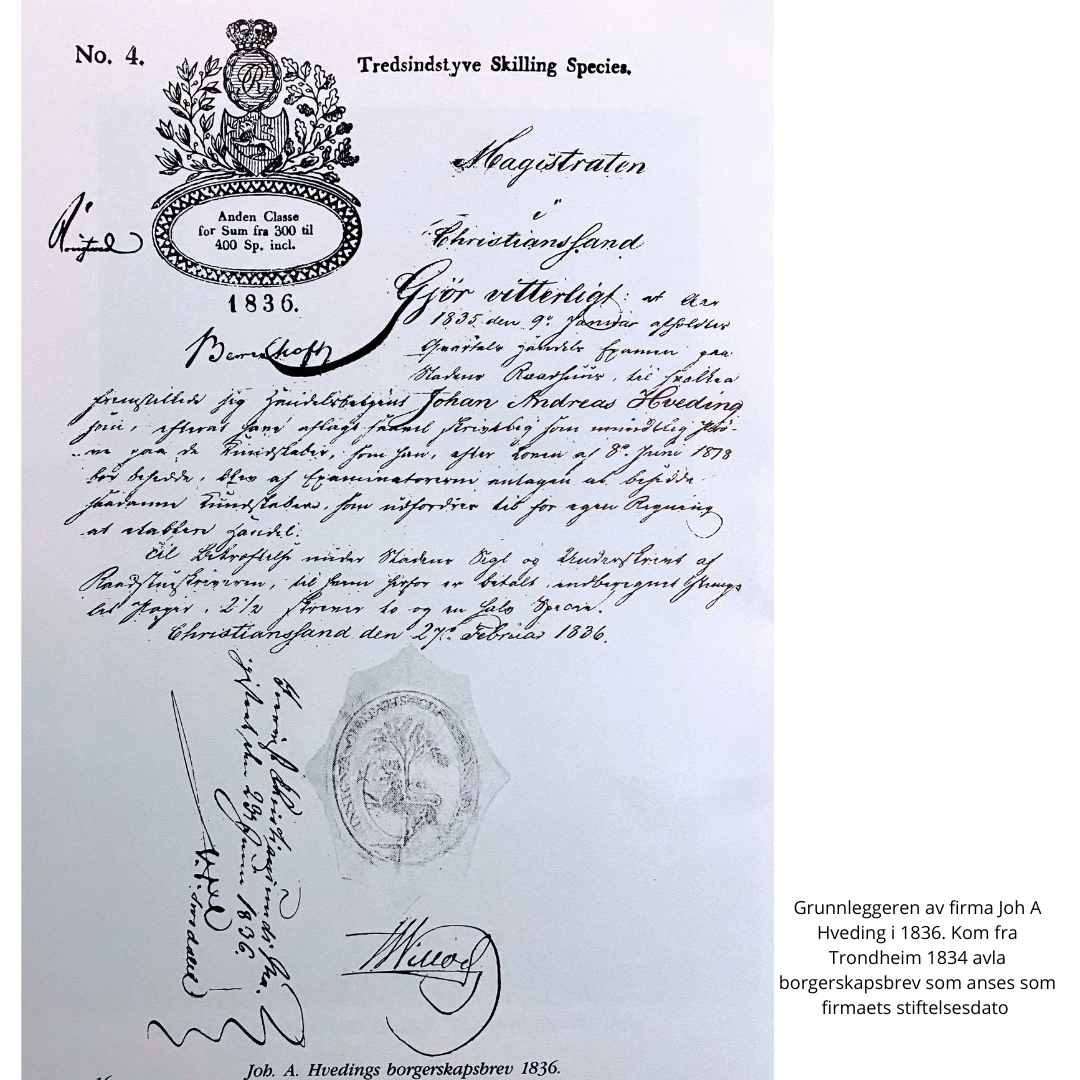 No. 4.
Tredsindstyve Skilling Species.
Anden Classe
for Sum fra 300 til
400 Sp. incl.
1836.
Magistraten
i
Christianssand
Gjör vitterligt: at Aar
1835 den 9de Januar afholdtes
Qvartals Handels Examen paa
Stadens Raadhuus, til hvilken
fremstillede sig Handelsbetjent Johan Andreas Hveding
som, efterat have aflagt saavel skriftlig som mundtlig Prö-
ve paa de Kundskaber, som han, efter Loven af 8de Juni 1818
bör besidde, blev af Examinatorerne antagen at besidde
saadanne Kundskaber, som udfordres til for egen Regning
at etablere Handel.
Til Bekræftelse under Stadens Segl og Underskrivt af
Raadstueskriveren, til hvem herfor er betalt, iberegnet
Papir, 2 1/2 skriver to og en halv Specie.
Christianssand den 27de Februar 1836.
den 29 Juni 1836.
INSIGNIA
Joh. A. Hvedings borgerskapsbrev 1836.
Grunnleggeren av firma Joh A
Hveding i 1836. Kom fra
Trondheim 1834 avla
borgerskapsbrev som anses som
firmaets stiftelsesdato